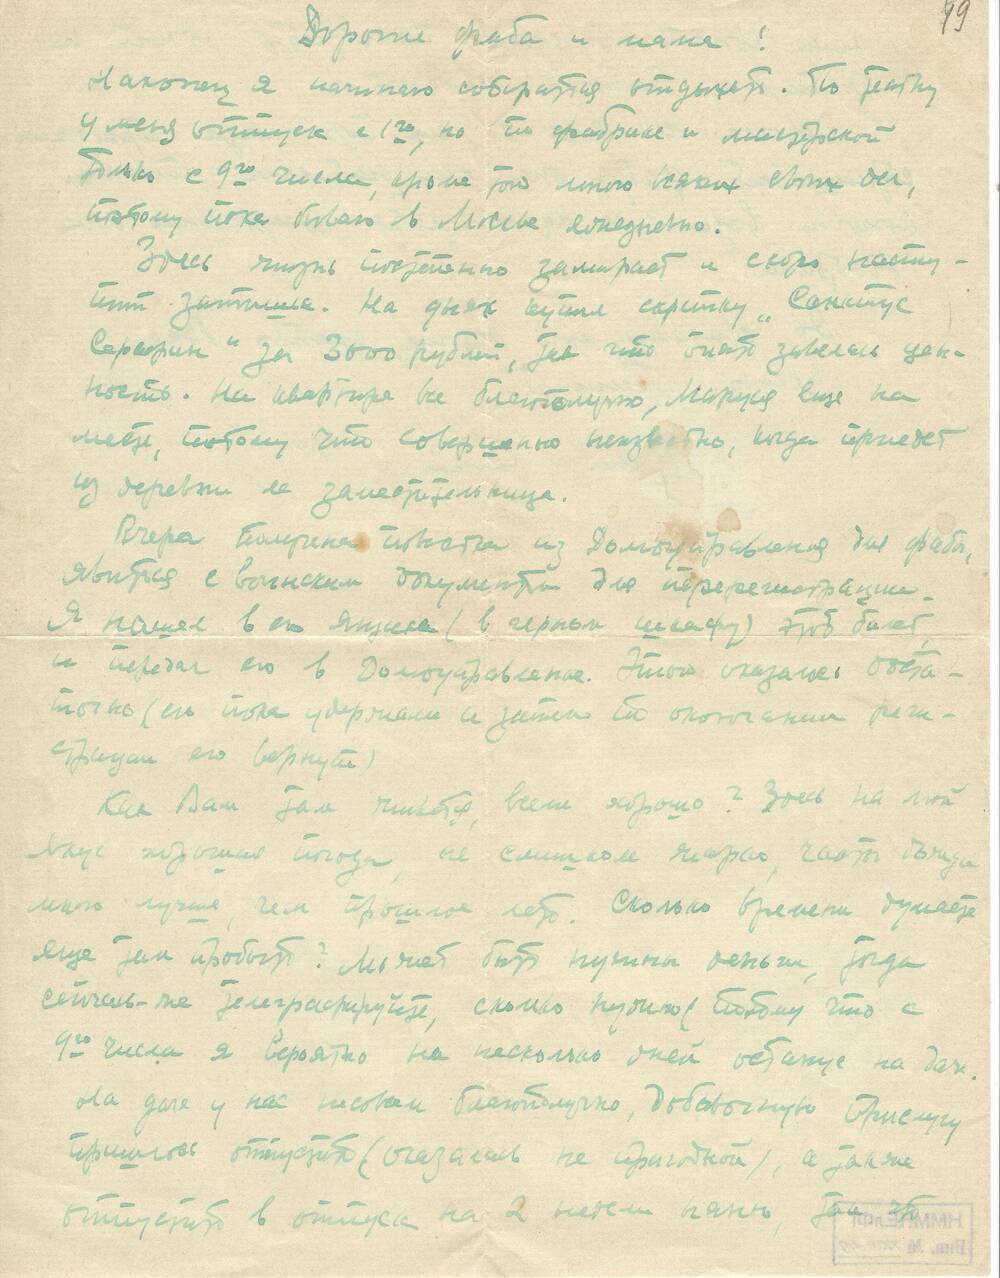 99
Дорогие фаба и мама!
Наконец я начинаю собираться отдыхать. По театру
у меня отпуск с 1го, но по фабрике и мастерской
только с 9го числа, кроме того много всяких своих дел,
поэтому пока бываю в Москве ежедневно.
Здесь жизнь постепенно замирает и скоро насту-
пит затишье. На днях купил скрипку „Санктус
Серафин" за 3000 рублей, так что опять завелась цен-
ность. На квартире все благополучно, Маруся еще на
месте, потому что совершенно неизвестно, когда приедет
из деревни ее заместительница.
Вчера получена повестка из Домоуправления для фабы,
явиться с воинским документом для перерегистрации.
Я нашел в его ящике (в черном шкафу) этот билет,
и передал его в Домоуправление. Этого оказалось доста-
точно (его пока удержали и затем по окончании реги-
страции его вернут)
Как Вам там живется, всем хорошо? Здесь на мой
вкус хорошая погода, не слишком жарко, часты дожди
много лучше, чем прошлое лето. Сколько времени думаете
еще там пробыть? Может быть нужны деньги, тогда
сейчас-же телеграфируйте, сколько нужно (потому что с
9го числа я вероятно на несколько дней останусь на даче.
На даче у нас не совсем благополучно, добавочную прислугу
пришлось отпустить (оказалась не пригодной), а также
отпустить в отпуск на 2 недели няню, так что
Инв. №